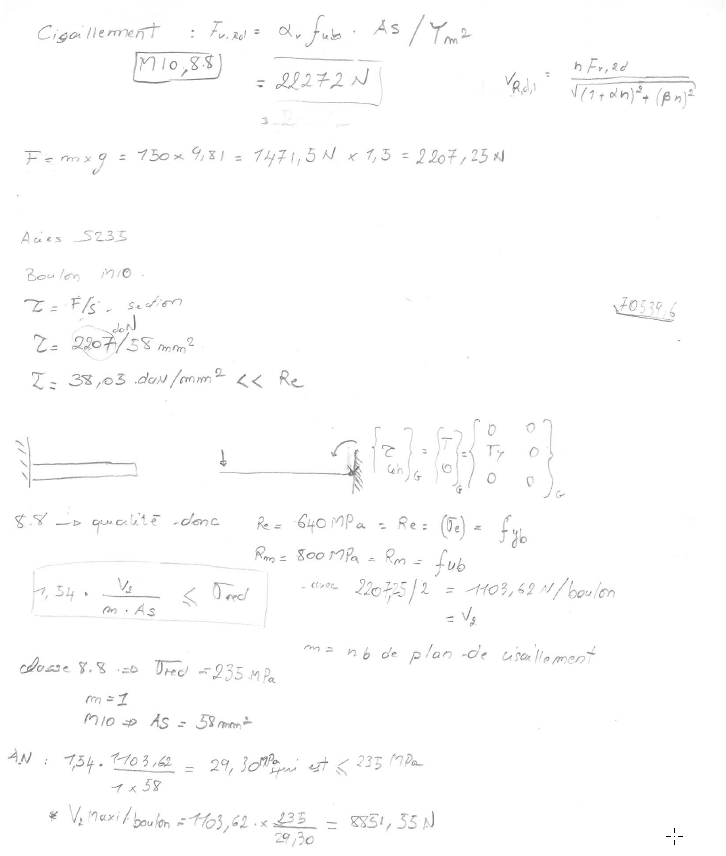 Cisaillement : Fv,Rd = αv fub . As / γm2
M10, 8.8
= 22272 N
VR,d,1 = n Fv,Rd / √(1+αn)²+(βn)²
F = m x g = 150 x 9,81 = 1471,5 N x 1,5 = 2207,25 N
Acier S235
Boulon M10.
τ = F/S - section
70539,6
τ = 2207 daN/58 mm²
τ = 38,03 daN/mm² << Re
{τ }G = {T 0}G = {0 0 Ty 0 0 0}G
8.8 → qualité donc Re = 640 MPa = Re = (σe) = fyb
Rm = 800 MPa = Rm = fub
1,54 . V1 / m . As ≤ σred
avec 2207,25/2 = 1103,62 N/boulon
= V1
m = nb de plan de cisaillement
classe 8.8 ⇒ σred = 235 MPa
m = 1
M10 ⇒ As = 58 mm²
AN : 1,54 . 1103,62 / 1 x 58 = 29,30 MPa qui est ≤ 235 MPa
* V1 maxi/boulon = 1103,62 . x 235 / 29,30 = 8851,55 N